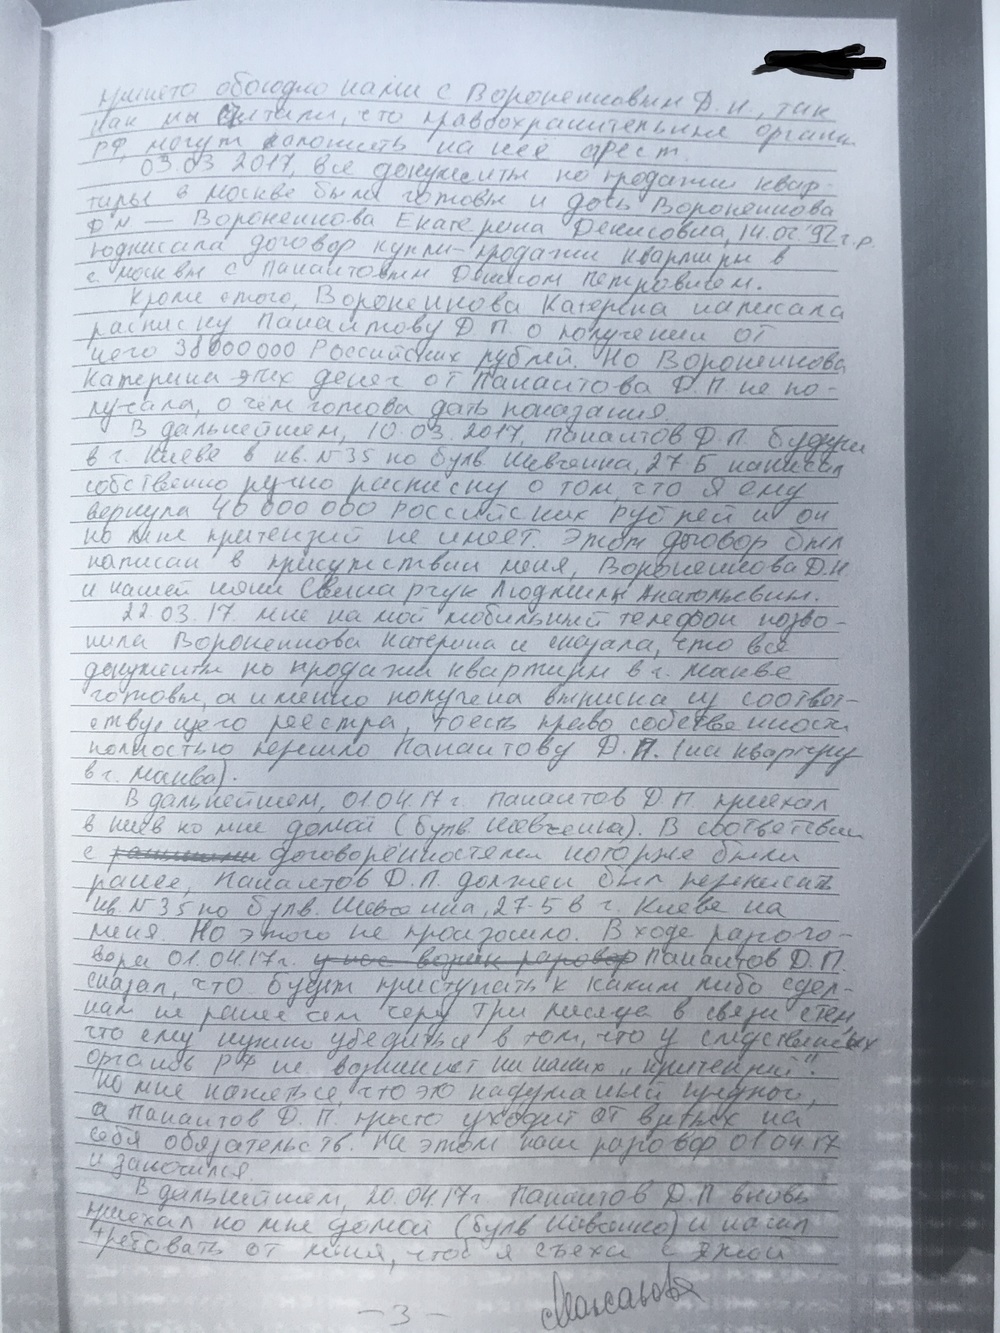 принято обоюдно нами с Вороненковым Д.Н., так
как мы считали, что правоохранительные органы
РФ могут наложить на нее арест.
03.03 2017, все документы по продажи квар-
тиры в Москве были готовы и дочь Вороненкова
Д.Н. — Вороненкова Екатерина Денисовна, 14.02 92 г.р.
подписала договор купли-продажи квартиры в
г. Москвы с Панаитовым Денисом Петровичем.
Кроме этого, Вороненкова Катерина написала
расписку Панаитову Д П. о получении от
него 38000000 Российских рублей. Но Вороненкова
Катерина этих денег от Панаитова Д.П не по-
лучала, о чём готова дать показания.
В дальнейшем, 10.03.2017, Панаитов Д.П. будучи
в г. Киеве в кв. №35 по булв Шевченка, 27-Б написал
собственно ручно расписку о том, что я ему
вернула 40 000 000 российских рублей и он
ко мне притензий не имеет. Этот договор был
написан в присутствии меня, Вороненкова Д.Н
и нашей няни Свинарчук Людмилы Анатольевны.
22.03.17 мне на мой мобильный телефон позво-
нила Вороненкова Катерина и сказала, что все
документы по продажи квартиры в г. Макве
готовы, а именно получена выписка из соответ-
ствующего реестра, тоесть право собственности
полностью перешло Панаитову Д.П. (на квартиру
в г. Маква).
В дальнейшем, 01.04.17 г. Панаитов Д.П приехал
в Киев ко мне домой (булв. Шевченка). В соответствии
с договоренностями которые были
ранее, Панаитов Д.П. должен был переписать
кв. №35 по булв. Шевченка, 27-Б в г. Киеве на
меня. Но этого не произошло. В ходе разгово-
вора 01.04.17г. у нас возник разговор Панаитов Д.П.
сказал, что будет приступать к каким либо сдел-
кам не ранее чем через три месяца в связи с тем,
что ему нужно убедиться в том, что у следственных
органов РФ не возникнет ни каких „притензий".
Но мне кажется, что это надуманый предлог,
а Панаитов Д.П. просто уходит от взятых на
себя обязательств. На этом наш разговор 01.04.17
и закончился.
В дальнейшем, 20.04.17г. Панаитов Д.П вновь
приехал ко мне домой (булв Шевченко) и начал
требовать от меня, чтоб я съеха с этой
— 3 —
Максакова